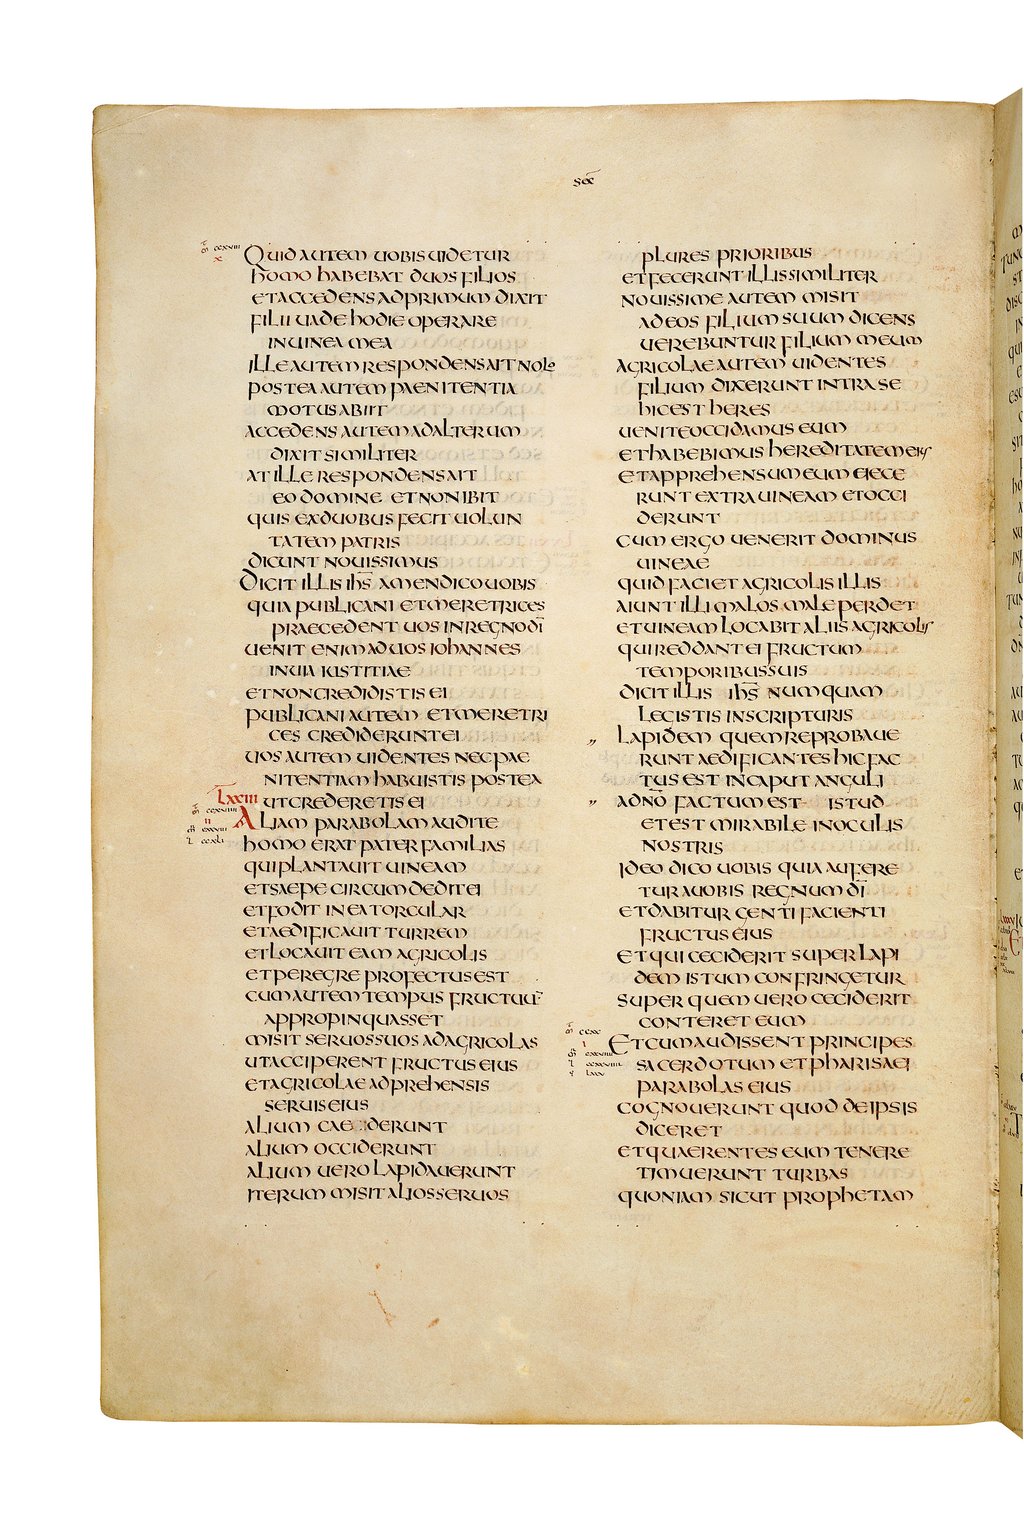 sec̄
QUID AUTEM UOBIS UIDETUR
HOMO HABEBAT DUOS FILIOS
ET ACCEDENS AD PRIMUM DIXIT
FILII UADE HODIE OPERARE
IN UINEA MEA
ILLE AUTEM RESPONDENS AIT NOLO
POSTEA AUTEM PAENITENTIA
MOTUS ABIIT
ACCEDENS AUTEM AD ALTERUM
DIXIT SIMILITER
AT ILLE RESPONDENS AIT
EO DOMINE ET NON IBIT
QUIS EX DUOBUS FECIT UOLUN
TATEM PATRIS
DICUNT NOUISSIMUS
DICIT ILLIS IHS̄ AMEN DICO UOBIS
QUIA PUBLICANI ET MERETRICES
PRAECEDENT UOS IN REGNO DĪ
UENIT ENIM AD UOS IOHANNES
IN UIA IUSTITIAE
ET NON CREDIDISTIS EI
PUBLICANI AUTEM ET MERETRI
CES CREDIDERUNT EI
UOS AUTEM UIDENTES NEC PAE
NITENTIAM HABUISTIS POSTEA
LXXIII UT CREDERETIS EI
ALIAM PARABOLAM AUDITE
HOMO ERAT PATER FAMILIAS
QUI PLANTAUIT UINEAM
ET SAEPE CIRCUMDEDIT EI
ET FODIT IN EA TORCULAR
ET AEDIFICAUIT TURREM
ET LOCAUIT EAM AGRICOLIS
ET PEREGRE PROFECTUS EST
CUM AUTEM TEMPUS FRUCTUU̅
APPROPINQUASSET
MISIT SERUOS SUOS AD AGRICOLAS
UT ACCIPERENT FRUCTUS EIUS
ET AGRICOLAE ADPREHENSIS
SERUIS EIUS
ALIUM CAE DERUNT
ALIUM OCCIDERUNT
ALIUM UERO LAPIDAUERUNT
ITERUM MISIT ALIOS SERUOS
PLURES PRIORIBUS
ET FECERUNT ILLIS SIMILITER
NOUISSIME AUTEM MISIT
AD EOS FILIUM SUUM DICENS
UEREBUNTUR FILIUM MEUM
AGRICOLAE AUTEM UIDENTES
FILIUM DIXERUNT INTRA SE
HIC EST HERES
UENITE OCCIDAMUS EUM
ET HABEBIMUS HEREDITATEM EIUS
ET APPREHENSUM EUM EIECE
RUNT EXTRA UINEAM ET OCCI
DERUNT
CUM ERGO UENERIT DOMINUS
UINEAE
QUID FACIET AGRICOLIS ILLIS
AIUNT ILLI MALOS MALE PERDET
ET UINEAM LOCABIT ALIIS AGRICOLIS
QUI REDDANT EI FRUCTUM
TEMPORIBUS SUIS
DICIT ILLIS IHS̄ NUMQUAM
LEGISTIS IN SCRIPTURIS
LAPIDEM QUEM REPROBAUE
RUNT AEDIFICANTES HIC FAC
TUS EST IN CAPUT ANGULI
A DN̄O FACTUM EST ISTUD
ET EST MIRABILE IN OCULIS
NOSTRIS
IDEO DICO UOBIS QUIA AUFERE
TUR A UOBIS REGNUM DĪ
ET DABITUR GENTI FACIENTI
FRUCTUS EIUS
ET QUI CECIDERIT SUPER LAPI
DEM ISTUM CONFRINGETUR
SUPER QUEM UERO CECIDERIT
CONTERET EUM
ET CUM AUDISSENT PRINCIPES
SACERDOTUM ET PHARISAEI
PARABOLAS EIUS
COGNOUERUNT QUOD DE IPSIS
DICERET
ET QUAERENTES EUM TENERE
TIMUERUNT TURBAS
QUONIAM SICUT PROPHETAM